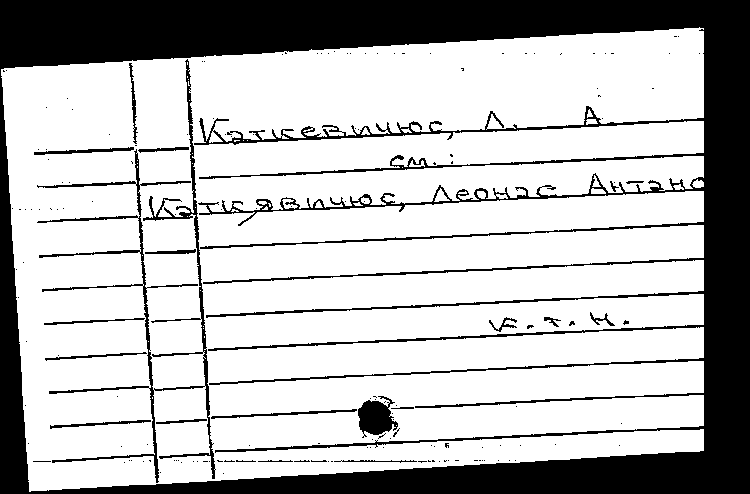 Каткевичюс, Л. А.
см.:
Каткявичюс, Леонас Антано
к.т.н.